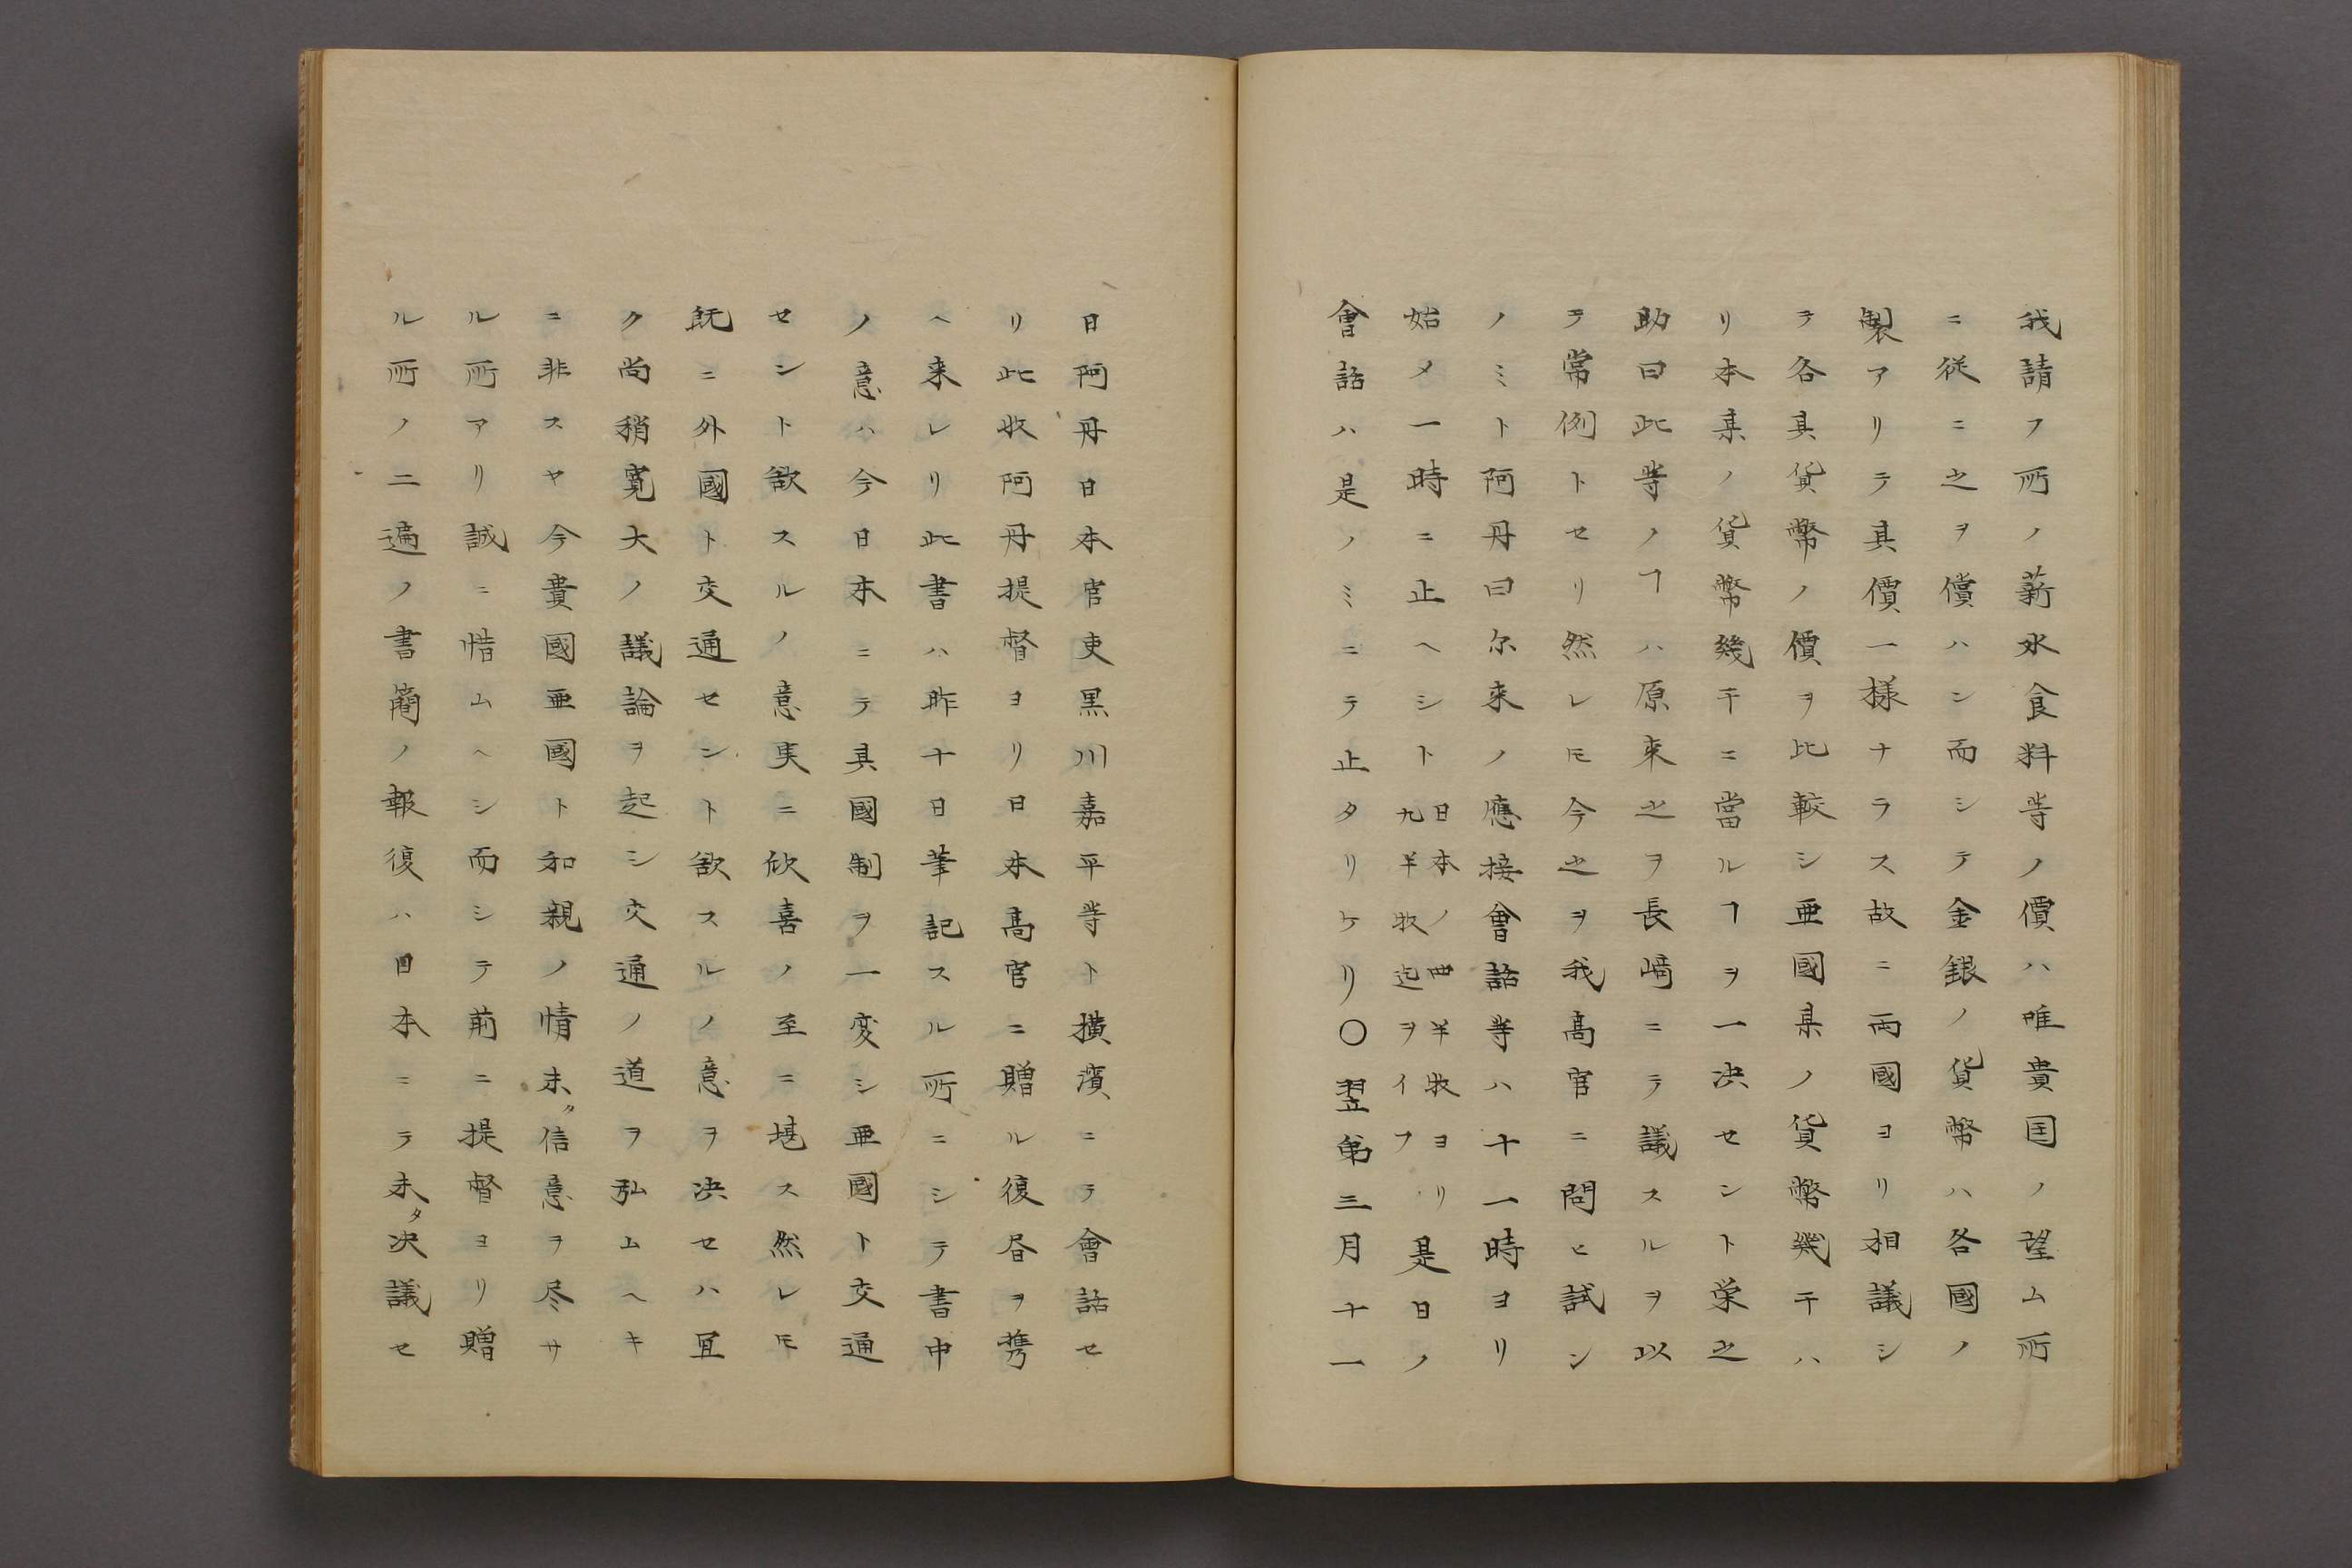 我請フ所ノ薪水食料等ノ價ハ唯貴国ノ望ム所
ニ従ニ之ヲ償ハン而シテ金銀ノ貨幣ハ各國ノ
製アリテ其價一樣ナラス故ニ両國ヨリ相議シ
ヲ各其貨幣ノ價ヲ比較シ亜國某ノ貨幣幾干ハ
リ本某ノ貨幣幾干ニ當ルヿヲ一决セント栄之
助曰此等ノヿハ原来之ヲ長﨑ニテ議スルヲ以
テ常例トセリ然レ𪜈今之ヲ我髙官ニ問ヒ試ン
ノミト阿丹曰尓来ノ應接會話等ハ十一時ヨリ
始メ一時ニ止ヘシト
日本ノ四半牧ヨリ
九半牧迄ヲイフ
是日ノ
會話ハ是ノミニテ止タリケリ〇翌第三月十一
日阿丹日本官吏黒川嘉平等ト横濱ニテ會話セ
リ此牧阿丹提督ヨリ日本髙官ニ贈ル復昏ヲ携
ヘ来レリ此書ハ昨十日筆記スル所ニシテ書中
ノ意ハ今日本ニテ其國制ヲ一変シ亜國ト交通
セント欲スルノ意実ニ欣喜ノ至ニ堪ス然レ𪜈
既ニ外國ト交通セント欲スルノ意ヲ决セハ宜
ク尚稍寛大ノ議論ヲ起シ交通ノ道ヲ弘ムヘキ
ニ非スヤ今貴國亜國ト和親ノ情未タ信意ヲ尽サ
ル所アリ誠ニ惜ムヘシ而シテ前ニ提督ヨリ贈
ル所ノ二遍ノ書簡ノ報復ハ日本ニテ未タ决議セ